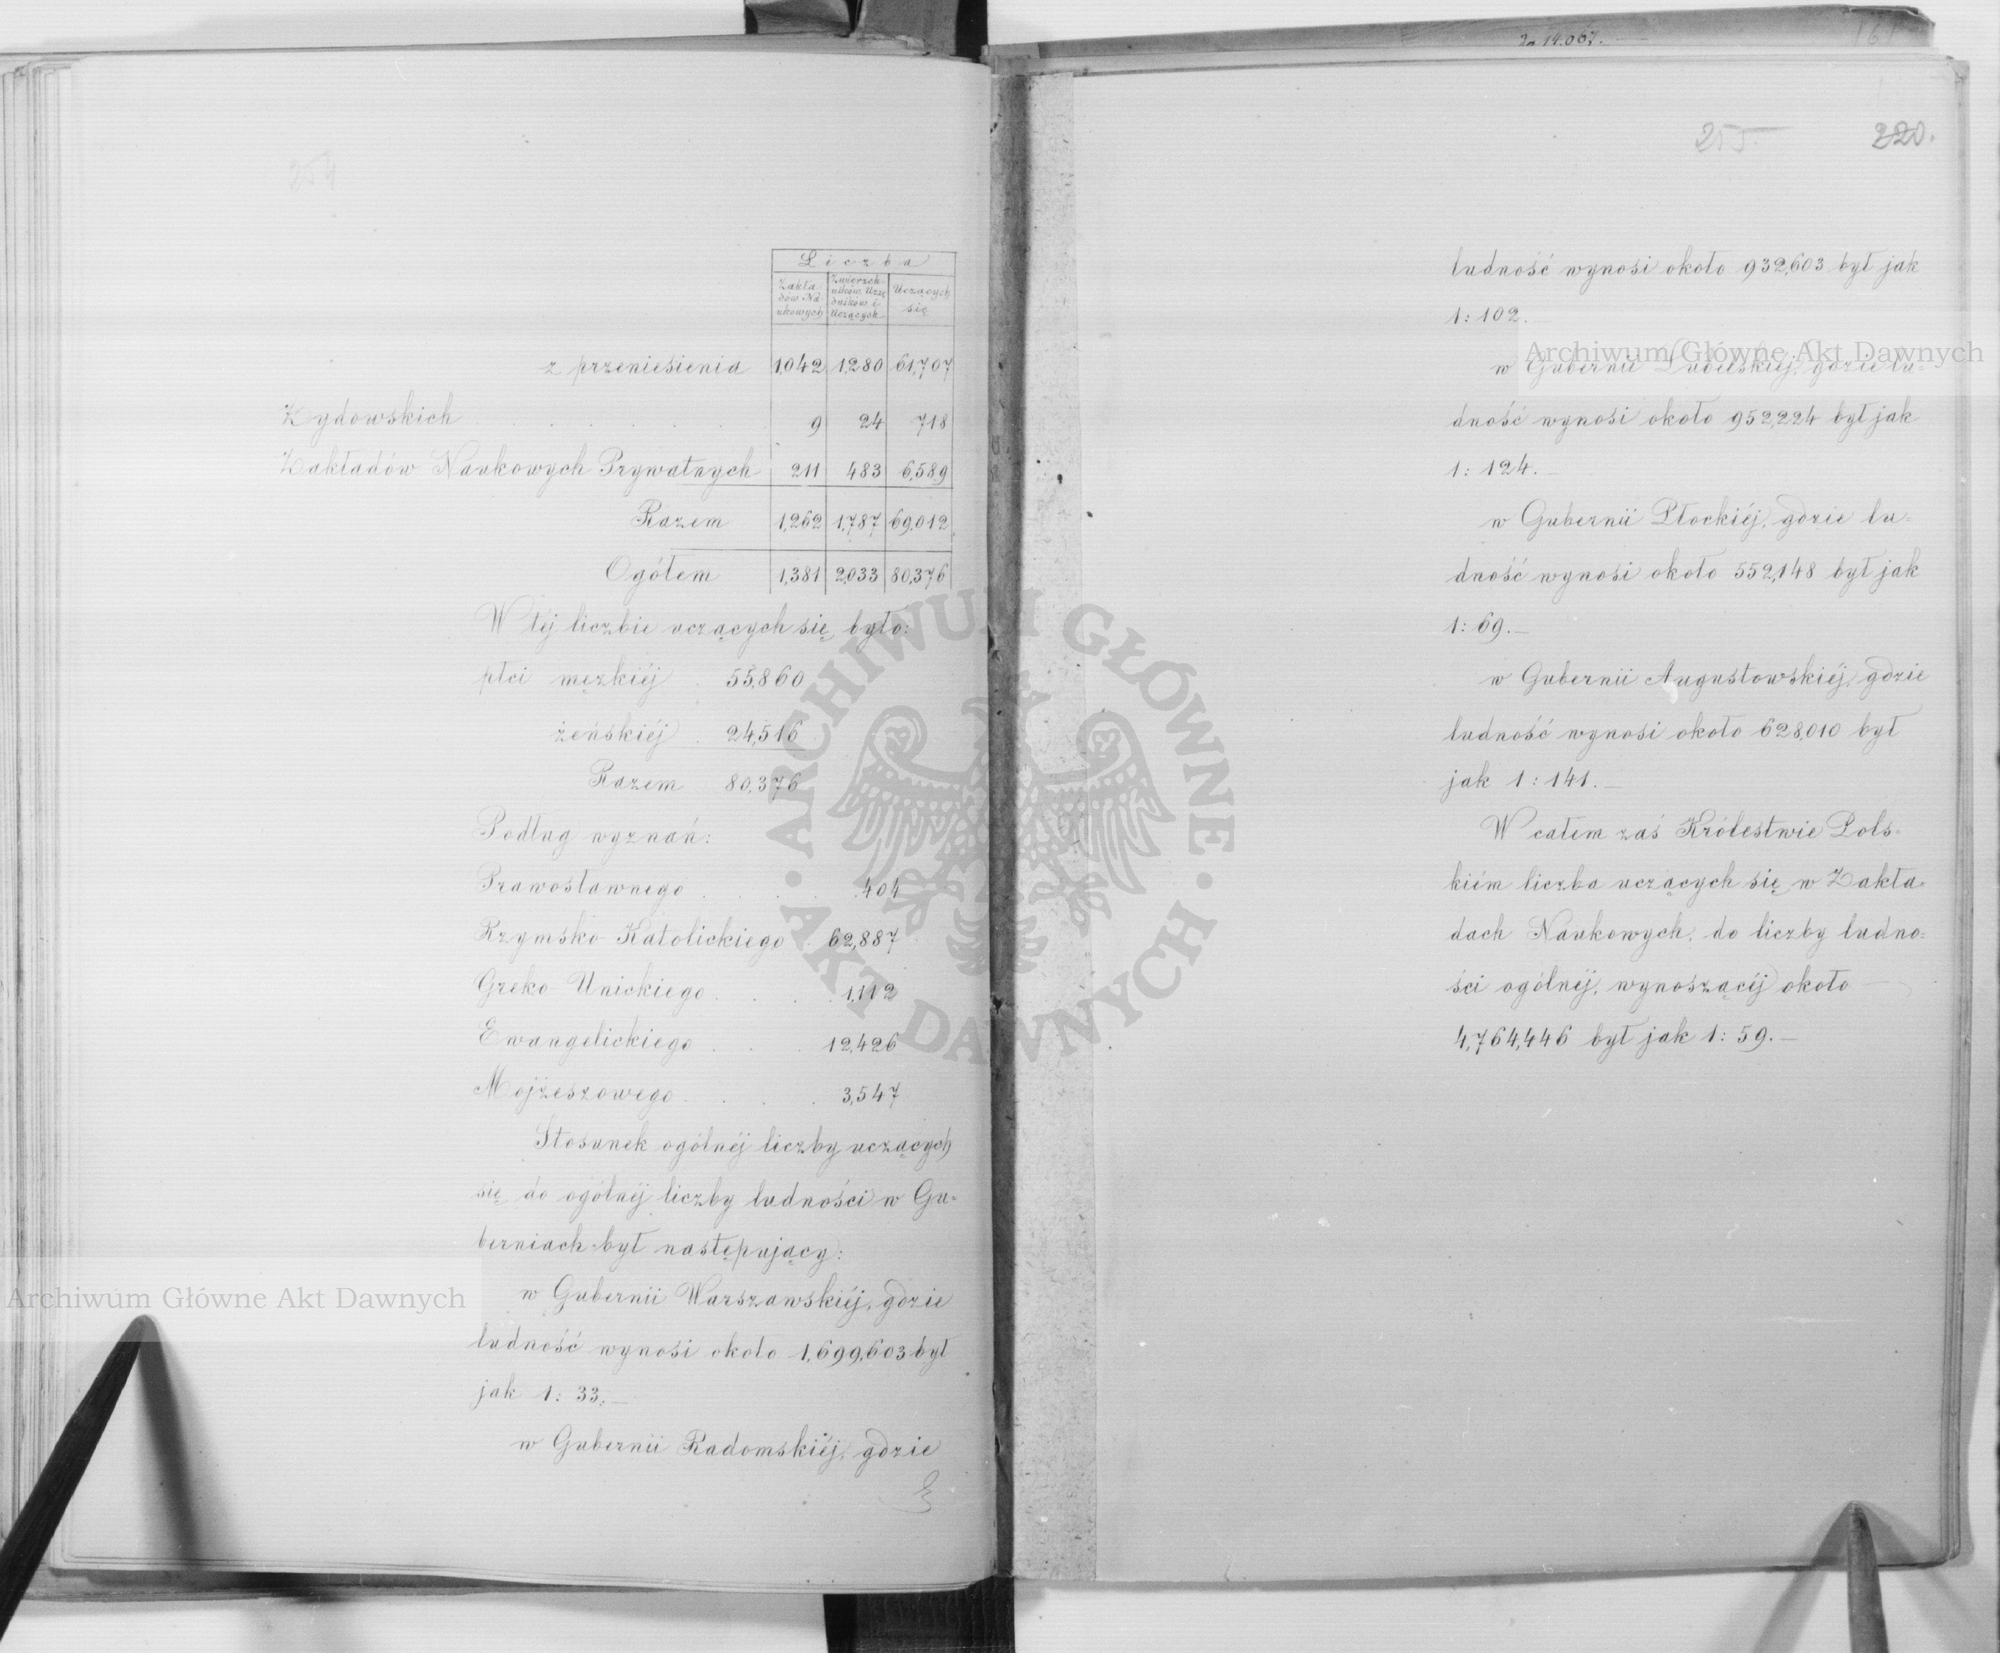 254
Liczba
Zakła-
dów Na-
ukowych
Zwierzch-
ników, Urzę-
dników i
Uczących
Uczących
się
z przeniesienia 1,042 1,280 61,707
Żydowskich 9 24 718
Zakładów Naukowych Prywatnych 211 483 6,589
Razem 1,262 1,787 69,012
Ogółem 1,381 2,033 80,376
W téj liczbie uczących się było:
płci męzkiéj . 55,860
żeńskiéj . 24,516
Razem 80,376
Podług wyznań:
Prawosławnego . . . . 404
Rzymsko Katolickiego . 62,887
Greko Unickiego . . . . 1,112
Ewangelickiego . . 12,426
Mojżeszowego . . . . 3,547
Stosunek ogólnéj liczby uczących
się do ogólnéj liczby ludności w Gu-
berniach był następujący:
w Gubernii Warszawskiéj, gdzie
ludność wynosi około 1,699,603 był
jak 1: 33.—
w Gubernii Radomskiéj, gdzie
2a 14.067.
161
255.
220.
ludność wynosi około 932,603 był jak
1: 102.—
w Gubernii Lubelskiéj, gdzie lu-
dność wynosi około 952,224 był jak
1: 124.—
w Gubernii Płockiéj, gdzie lu-
dność wynosi około 552,148 był jak
1: 69.—
w Gubernii Augustowskiéj, gdzie
ludność wynosi około 628,010 był
jak 1: 141.—
W całem zaś Królestwie Pols-
kiém liczba uczących się w Zakła-
dach Naukowych, do liczby ludno-
ści ogólnéj, wynoszącéj około
4,764,446 był jak 1: 59.—
Archiwum Główne Akt Dawnych
Archiwum Główne Akt Dawnych
ARCHIWUM GŁÓWNE · AKT DAWNYCH ·